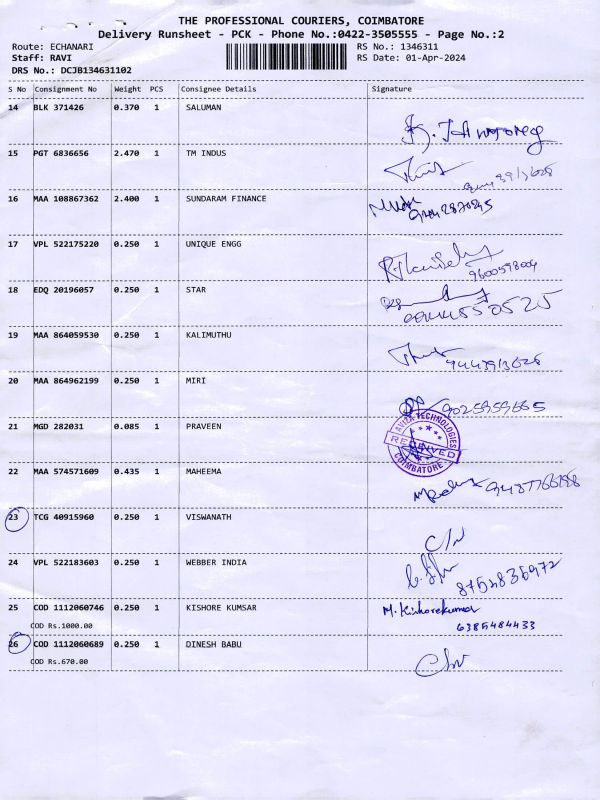 THE PROFESSIONAL COURIERS, COIMBATORE
Delivery Runsheet - PCK - Phone No.:0422-3505555 - Page No.:2
Route: ECHANARI
Staff: RAVI
DRS No.: DCJB134631102
RS No.: 1346311
RS Date: 01-Apr-2024
S No Consignment No Weight PCS Consignee Details Signature
14 BLK 371426 0.370 1 SALUMAN
15 PGT 6836656 2.470 1 TM INDUS
16 MAA 108867362 2.400 1 SUNDARAM FINANCE
17 VPL 522175220 0.250 1 UNIQUE ENGG
9600598004
18 EDQ 20196057 0.250 1 STAR
19 MAA 864059530 0.250 1 KALIMUTHU
20 MAA 864962199 0.250 1 MIRI
9025959665
21 MGD 282031 0.085 1 PRAVEEN
AVIRA TECHNOLOGIES
RECEIVED
COIMBATORE
22 MAA 574571609 0.435 1 MAHEEMA
23 TCG 40915960 0.250 1 VISWANATH
24 VPL 522183603 0.250 1 WEBBER INDIA
8754836972
25 COD 1112060746 0.250 1 KISHORE KUMSAR M. Kishorekumar
COD Rs.1000.00 6385484433
26 COD 1112060689 0.250 1 DINESH BABU
COD Rs.670.00